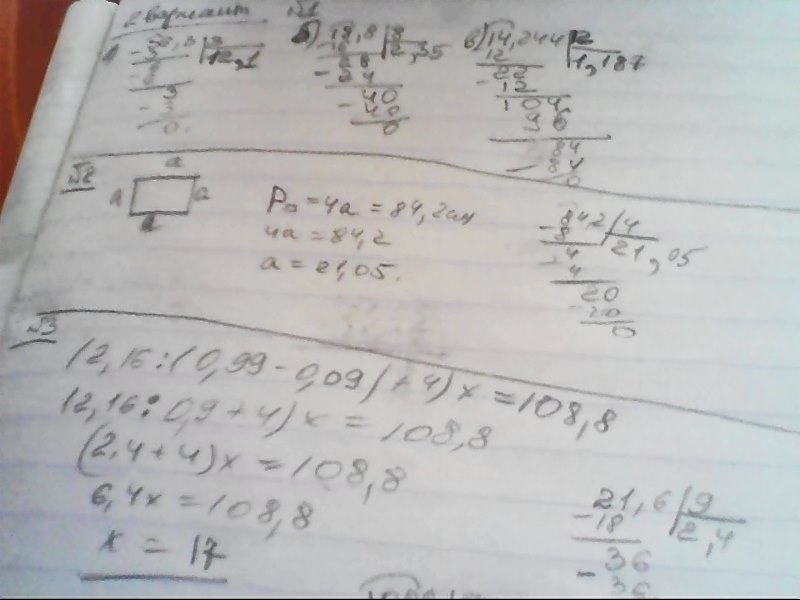 2 вариант №1
б) 18,8 | 8
2,35
28
- 24
40
- 40
0
в) 14,244 | 12
1,187
12
22
- 12
104
96
84
- 84
0
№2
a
a a
a
P□ = 4a = 84,2см
4a = 84,2
a = 21,05.
84,2 | 4
- 8 21,05
4
- 4
20
- 20
0
№3
(2,16:(0,99-0,09)+4)x = 108,8
(2,16:0,9+4)x = 108,8
(2,4+4)x = 108,8
6,4x = 108,8
x = 17
21,6 | 9
- 18 2,4
36
- 36